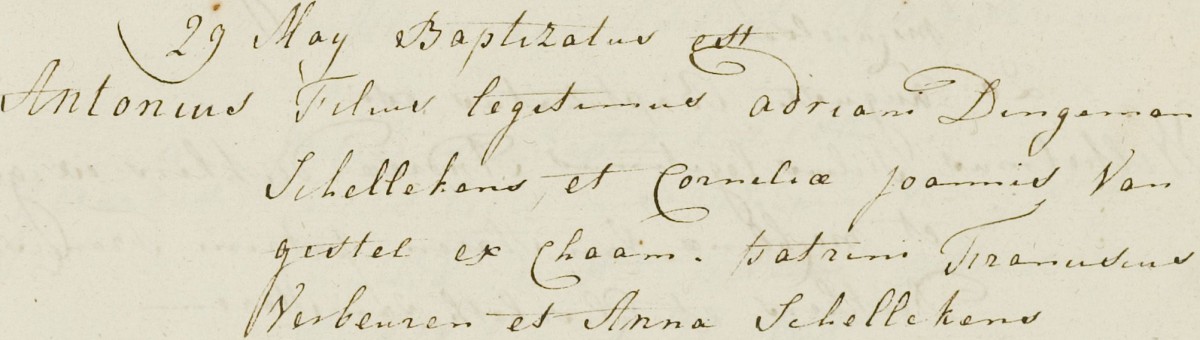 29 May Baptizatus est
Antonius Filius legitimus adriani Dingeman
Schellekens, et Corneliæ joannis Van
gestel ex Chaam. patrini Franciscus
Verbeuren et Anna Schellekens